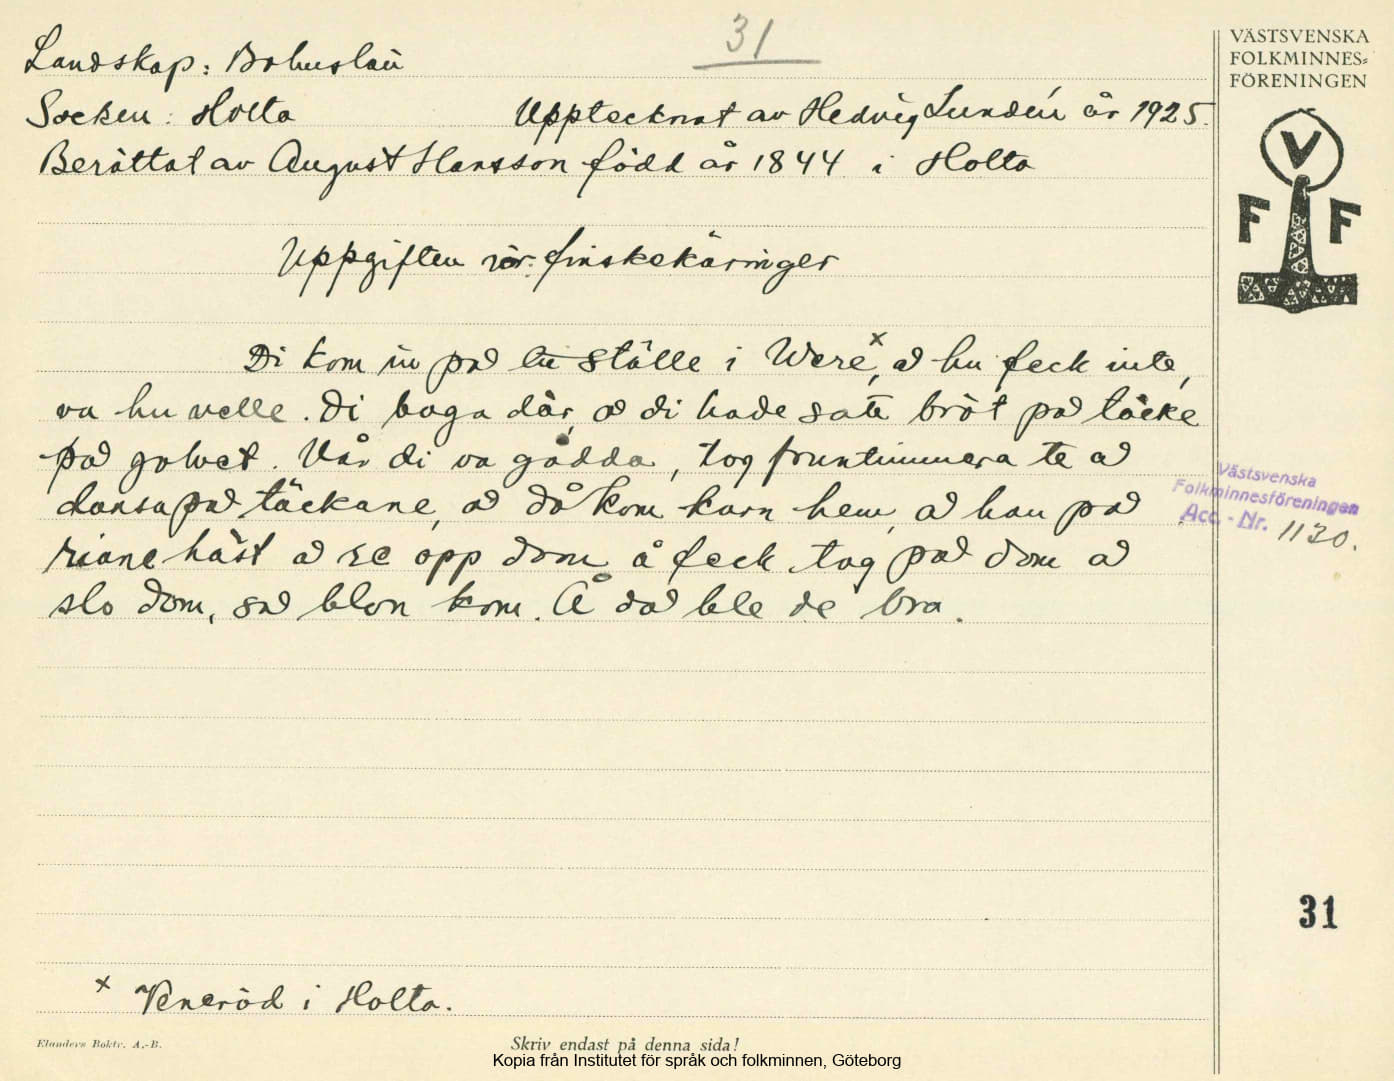 31
Landskap: Bohuslän
Socken: Holta Upptecknat av Hedvig Lundén år 1925.
Berättat av August Hansson född år 1844 i Holta
Uppgiften rör: finskekäringer
Di kom in på ställe i Were,x å hu feck inte,
va hu velle. Di baga där, å di hade satt bröt på täcke
på golvet. Når di va gådda, tog fruntimmera te å
dansa på täckane, å då kom karn hem, å han på
riane häst å re opp dom å feck tag på dom å
slo dom, så blon kom. Å då ble de bra.
x Veneröd i Holta.
VÄSTSVENSKA
FOLKMINNES-
FÖRENINGEN
V
F F
Västsvenska
Folkminnesföreningen
Acc. - Nr. 1130.
31
Elanders Boktr. A.-B.
Skriv endast på denna sida!
Kopia från Institutet för språk och folkminnen, Göteborg